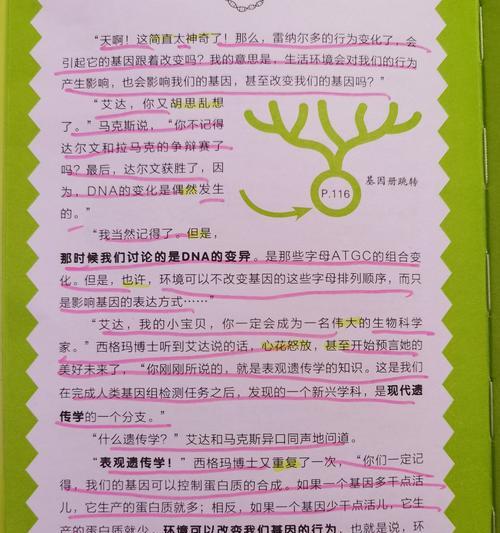 “天啊！这简直太神奇了！那么，雷纳尔多的行为变化了，会
引起它的基因跟着改变吗？我的意思是，生活环境会对我们的行为
产生影响，也会影响我们的基因，甚至改变我们的基因吗？”
“艾达，你又胡思乱想
了。”马克斯说，“你不记得
达尔文和拉马克的争辩赛了
吗？最后，达尔文获胜了，因
为，DNA的变化是偶然发生
的。”
基因册跳转
P.116
“我当然记得了。但是，
那时候我们讨论的是DNA的变异。是那些字母ATGC的组合变
化。但是，也许，环境可以不改变基因的这些字母排列顺序，而只
是影响基因的表达方式……”
“艾达，我的小宝贝，你一定会成为一名伟大的生物科学
家。”西格玛博士听到艾达说的话，心花怒放，甚至开始预言她的
美好未来了，“你刚刚所说的，就是表观遗传学的知识。这是我们
在完成人类基因组检测任务之后，发现的一个新兴学科，是现代遗
传学的一个分支。”
“什么遗传学？”艾达和马克斯异口同声地问道。
“表观遗传学！”西格玛博士又重复了一次，“你们一定记
得，我们的基因可以控制蛋白质的合成。如果一个基因多干点活
儿，它生产的蛋白质就多；相反，如果一个基因少干点活儿，它生
产的蛋白质就少。环境可以改变我们基因的行为，也就是说，环